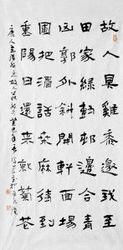 故人具雞黍邀我至
田家綠樹村邊合青
山郭外斜開軒面場
圃把酒話桑麻待到
重陽日還來就菊花
唐人孟浩然